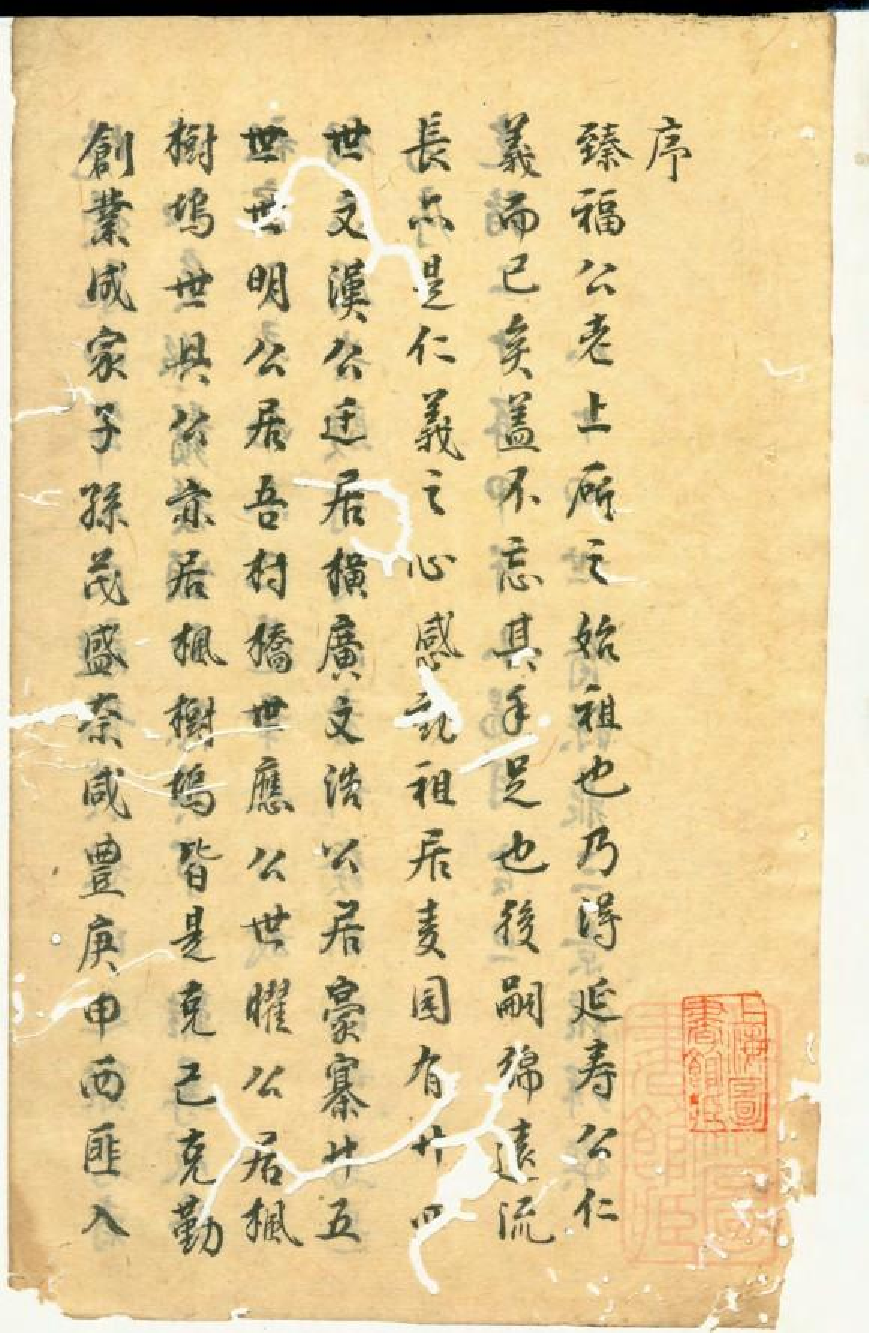 序
臻福公老上所之始祖也乃得延寿公仁
義而已矣盖不忘其手足也後嗣綿遠流
長亦是仁義之心感祖居麦园有廿四
世文漢公迁居横廣文浩公居豪寨廿五
世世明公居吾村橋世應公世曜公居楓
樹塢世具公亦居楓樹塢皆是克己克勤
創業成家子孫茂盛奈咸豊庚申西匪入
上海圖
書館藏